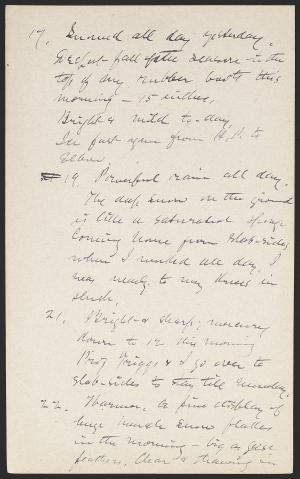 17. Snowed all day yesterday.
Deepest fall of the season - to the
top of my rubber boots this
morning - 15 inches.
Bright & mild to-day.
19. Powerful rain all day.
The deep snow on the ground
is like a saturated sponge
Coming home from Slab-sides
when I worked all day, I
was nearly to my knees in
slush.
21. Bright & sharp; mercury
down to 12 this morning
Briggs & I go over to
Slab-sides to stay till Sunday.
22. Warmer. A fine display of
huge snow flakes
in the morning - big as geese
feathers. Clear & thawing in